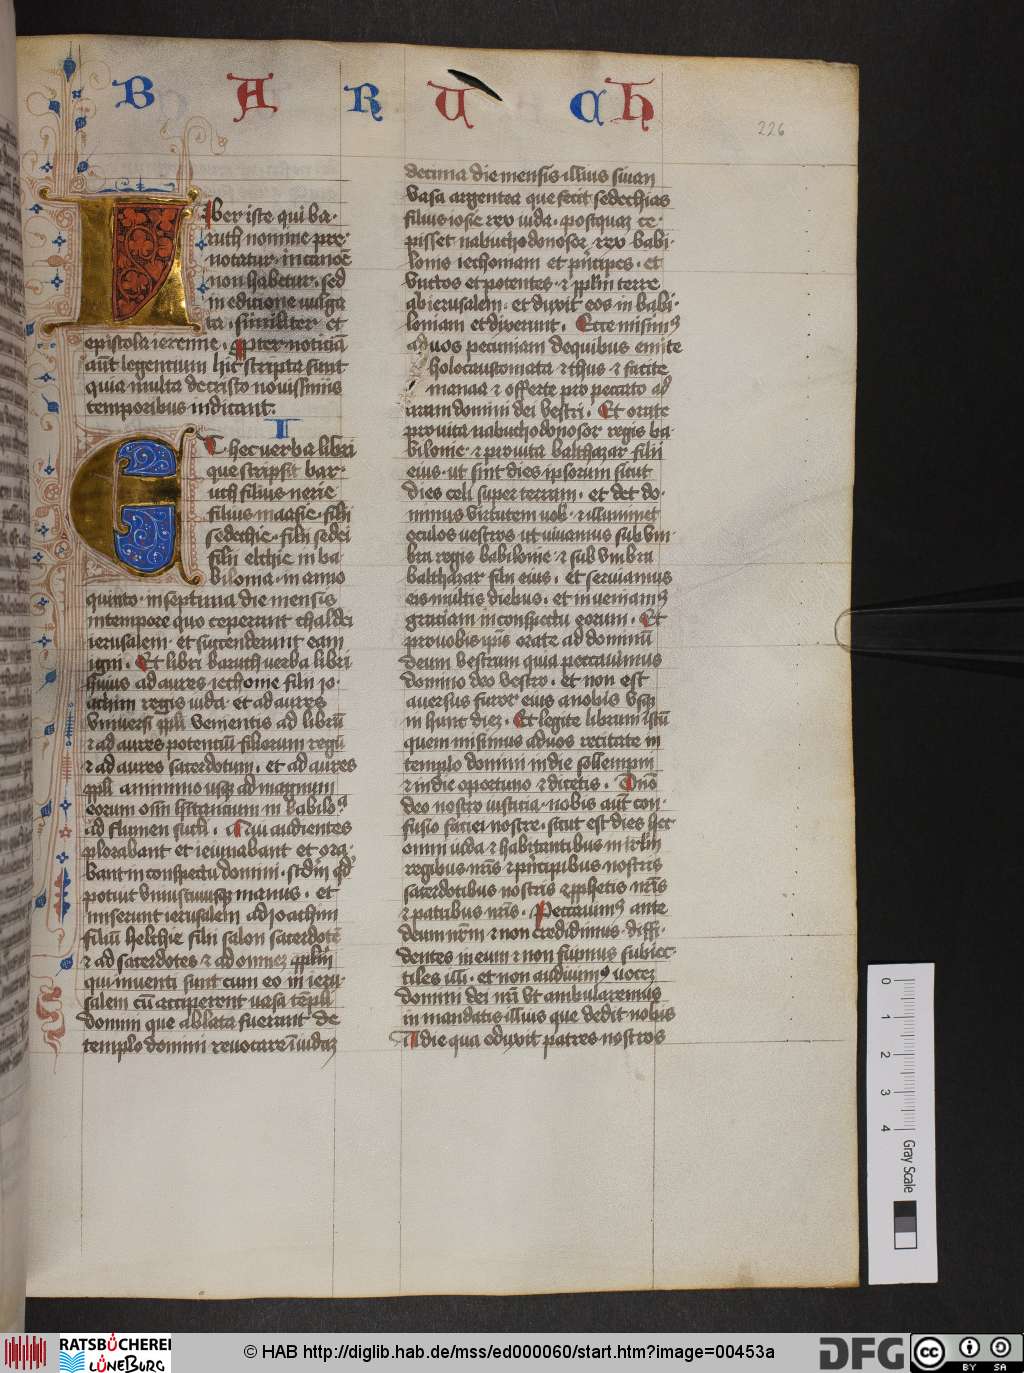 BARUCH
226
Liber iste qui ba·
ruth nomine pre·
notatur · in canōe
non habetur · sed
in editione vulga
ta · similiter et
epistola ieremie · Ppter noticiā
aūt legentium hic scripta sunt
quia multa de cristo novissimis
temporibus indicant.
I
Et hec verba libri
que scripsit bar·
uch filius nerie
filius maasie · filii
sedechie · filii sedei
filii elchie in ba·
bilonia · in anno
quinto · in septima die mensis
in tempore quo ceperunt chaldei
ierusalem · et succenderunt eam
igni · Et libri baruch verba libri
huius ad aures iechonie filii io·
achim regis iuda · et ad aures
universi ppli venientis ad librū
⁊ ad aures potentiū filiorum regū
⁊ ad aures sacerdotum · et ad aures
ppli a minimo usqꝫ ad magnum
eorum oīm hītancium in babiloᵃ
ad flumen sudi · Qui audientes
plorabant et ieiunabant et ora·
bant in conspectu domini · scdm qd
potuit uniuscuiusqꝫ manus · et
miserunt ierusalem ad ioachim
filiū helchie filii salon sacerdotē
⁊ ad sacerdotes ⁊ ad omneꝫ pplm
qui inventi sunt cum eo in ieru·
salem cū acciperent vasa tēpli
domini que ablata fuerant de
templo domini revocare ī iudaꝫ
decima die mensis illius sivan
vasa argentea que fecit sedechias
filius iosie rex iuda · postquaꝫ ce·
pisset nabuchodonosor rex babi·
lonis iechoniam et prīcipes · et
vinctos et potentes · ⁊ pplm terre
ab ierusalem · et duxit eos in babi·
loniam et dixerunt · Ecce misimꝰ
ad vos pecuniam de quibus emite
holocaustomata ⁊ thus ⁊ facite
manaa ⁊ offerte pro peccato ad
aram domini dei vestri · Et orate
pro vita nabuchodonosor regis ba·
bilonie · ⁊ pro vita balthazar filii
eius · ut sint dies ipsorum sicut
dies celi super terram · et det do·
minus virtutem nob · ⁊ illuminet
oculos nostros ut vivamus sub um·
bra regis babilonie · ⁊ sub umbra
balthazar filii eius · et serviamus
eis multis diebus · et inveniamꝰ
graciam in conspectu eorum · Et
pro nobis ipīs orate ad dominū
deum nostrum quia peccavimus
domino deo nostro · et non est
aversus furor eius a nobis usqꝫ
in hunc dieꝫ · Et legite librum istū
quem misimus ad vos recitate in
templo domini in die sollempni
⁊ in die oportuno ⁊ dicetis · Dnō
deo nostro iusticia · nobis aūt con·
fusio faciei nostre · sicut est dies hec
omni iuda ⁊ habitantibus in irlm
regibus nr̄is ⁊ prīcipibus nostris
sacerdotibus nostris ⁊ pphetis nr̄is
⁊ patribus nr̄is · Peccavimꝰ ante
deum nr̄m ⁊ non credidimus · diffi·
dentes in eum ⁊ non fuimus subiec·
tiles illi · et non audivimꝰ voceꝫ
domini dei nr̄i ut ambularemus
in mandatis illius que dedit nobis
A die qua eduxit patres nostros
0
1
2
3
4
Gray Scale
RATSBÜCHEREI LÜNEBURG
© HAB http://diglib.hab.de/mss/ed000060/start.htm?image=00453a
DFG
cc BY SA